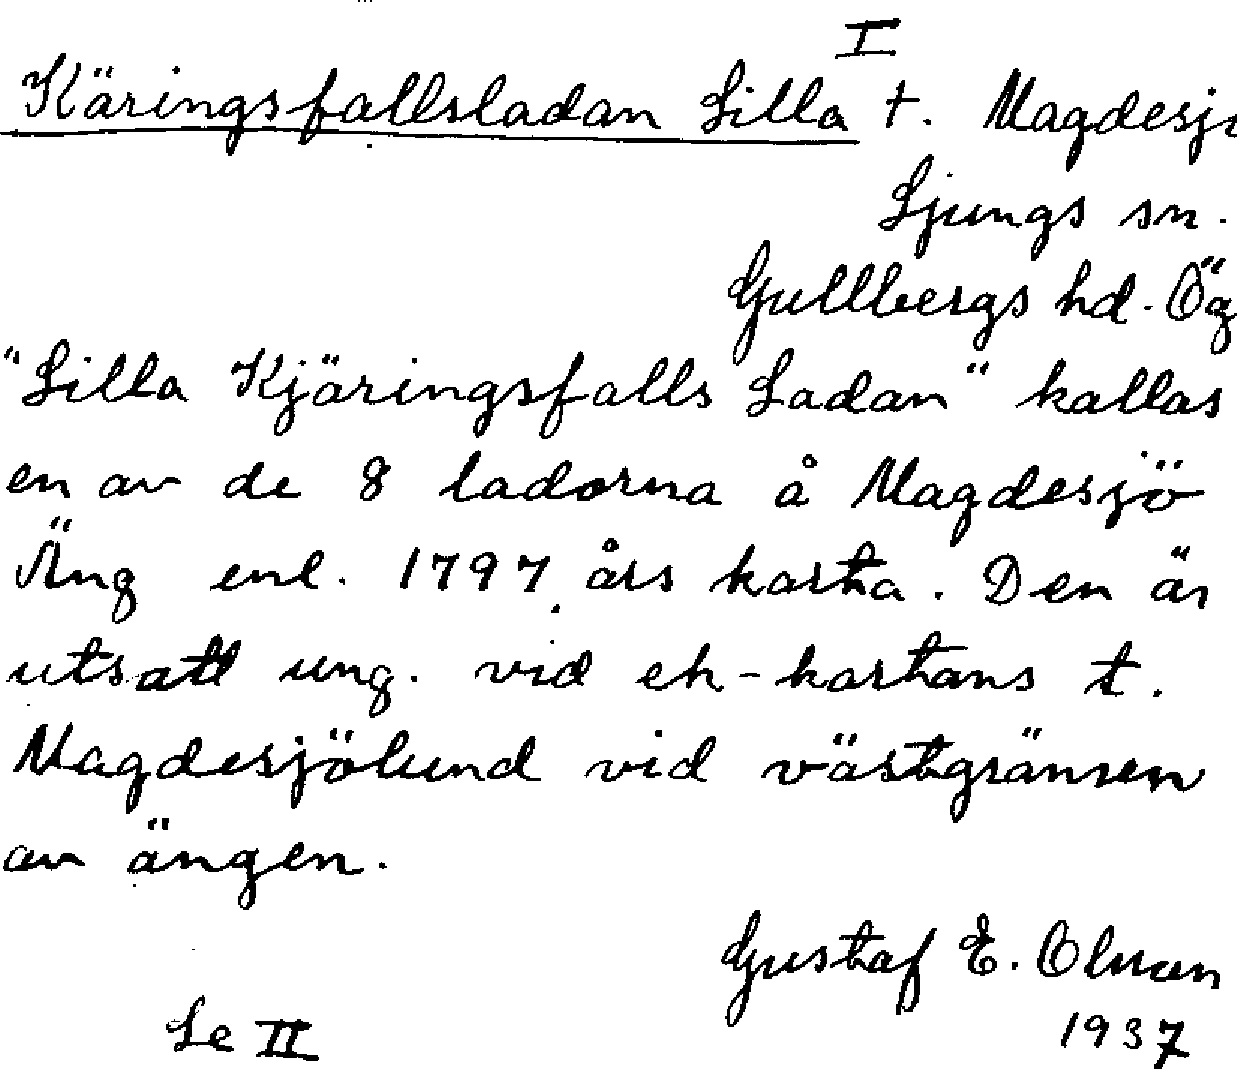 I
Käringsfallsladan Lilla t. Magdesjö
Ljungs sn.
Gullbergs hd. Ög
"Lilla Kjäringsfalls Ladan" kallas
en av de 8 ladorna å Magdesjö
Äng enl. 1797 års karta. Den är
utsatt ung. vid ek-kartans t.
Magdesjölund vid västgränsen
av ängen.
Gustaf E. Olsson
Se II
1937